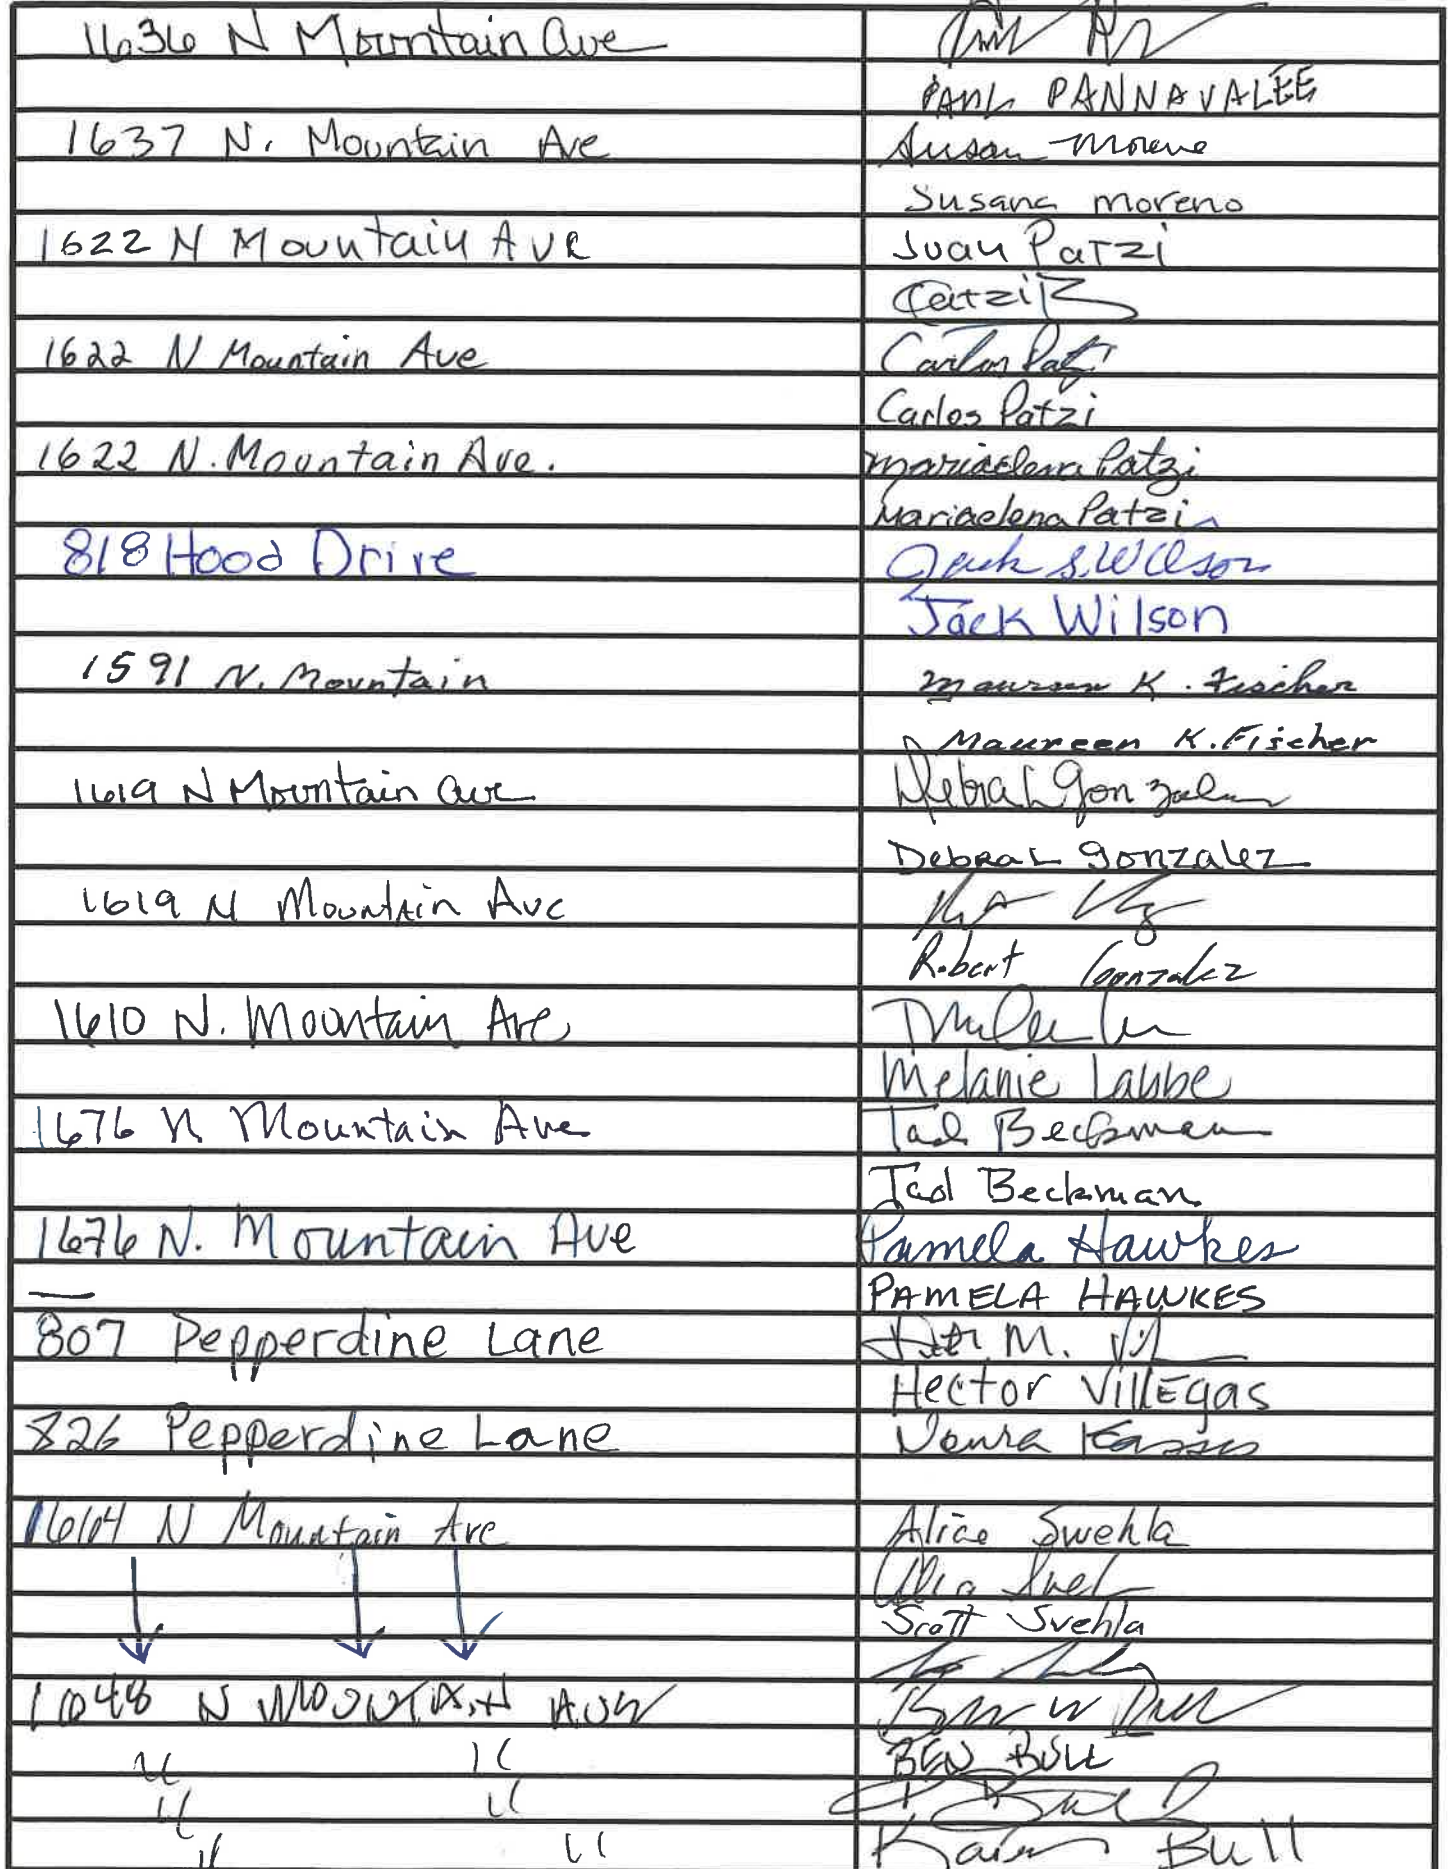 1636 N Mountain Ave
PANNAVALEE
1637 N. Mountain Ave Susan Moreno
Susana Moreno
1622 N Mountain Ave Juan Patzi
Patzi
1622 N Mountain Ave Carlos Patzi
Carlos Patzi
1622 N. Mountain Ave. Mariaelena Patzi
Mariaelena Patzi
818 Hood Drive Jack S. Wilson
Jack Wilson
1591 N. Mountain Maureen K. Fischer
Maureen K. Fischer
1619 N Mountain Ave Debra L Gonzalez
Debra L Gonzalez
1619 N Mountain Ave
Robert Gonzalez
1610 N. Mountain Ave
Melanie Labbe
1676 N Mountain Ave Tad Beckman
Tad Beckman
1676 N. Mountain Ave Pamela Hawkes
PAMELA HAWKES
807 Pepperdine Lane M.
Hector Villegas
826 Pepperdine Lane Kassis
1664 N Mountain Ave Alice Swehla
Scott Svehla
1648 N Mountain Ave
BEN BULL
" "
" "
" " Karen Bull